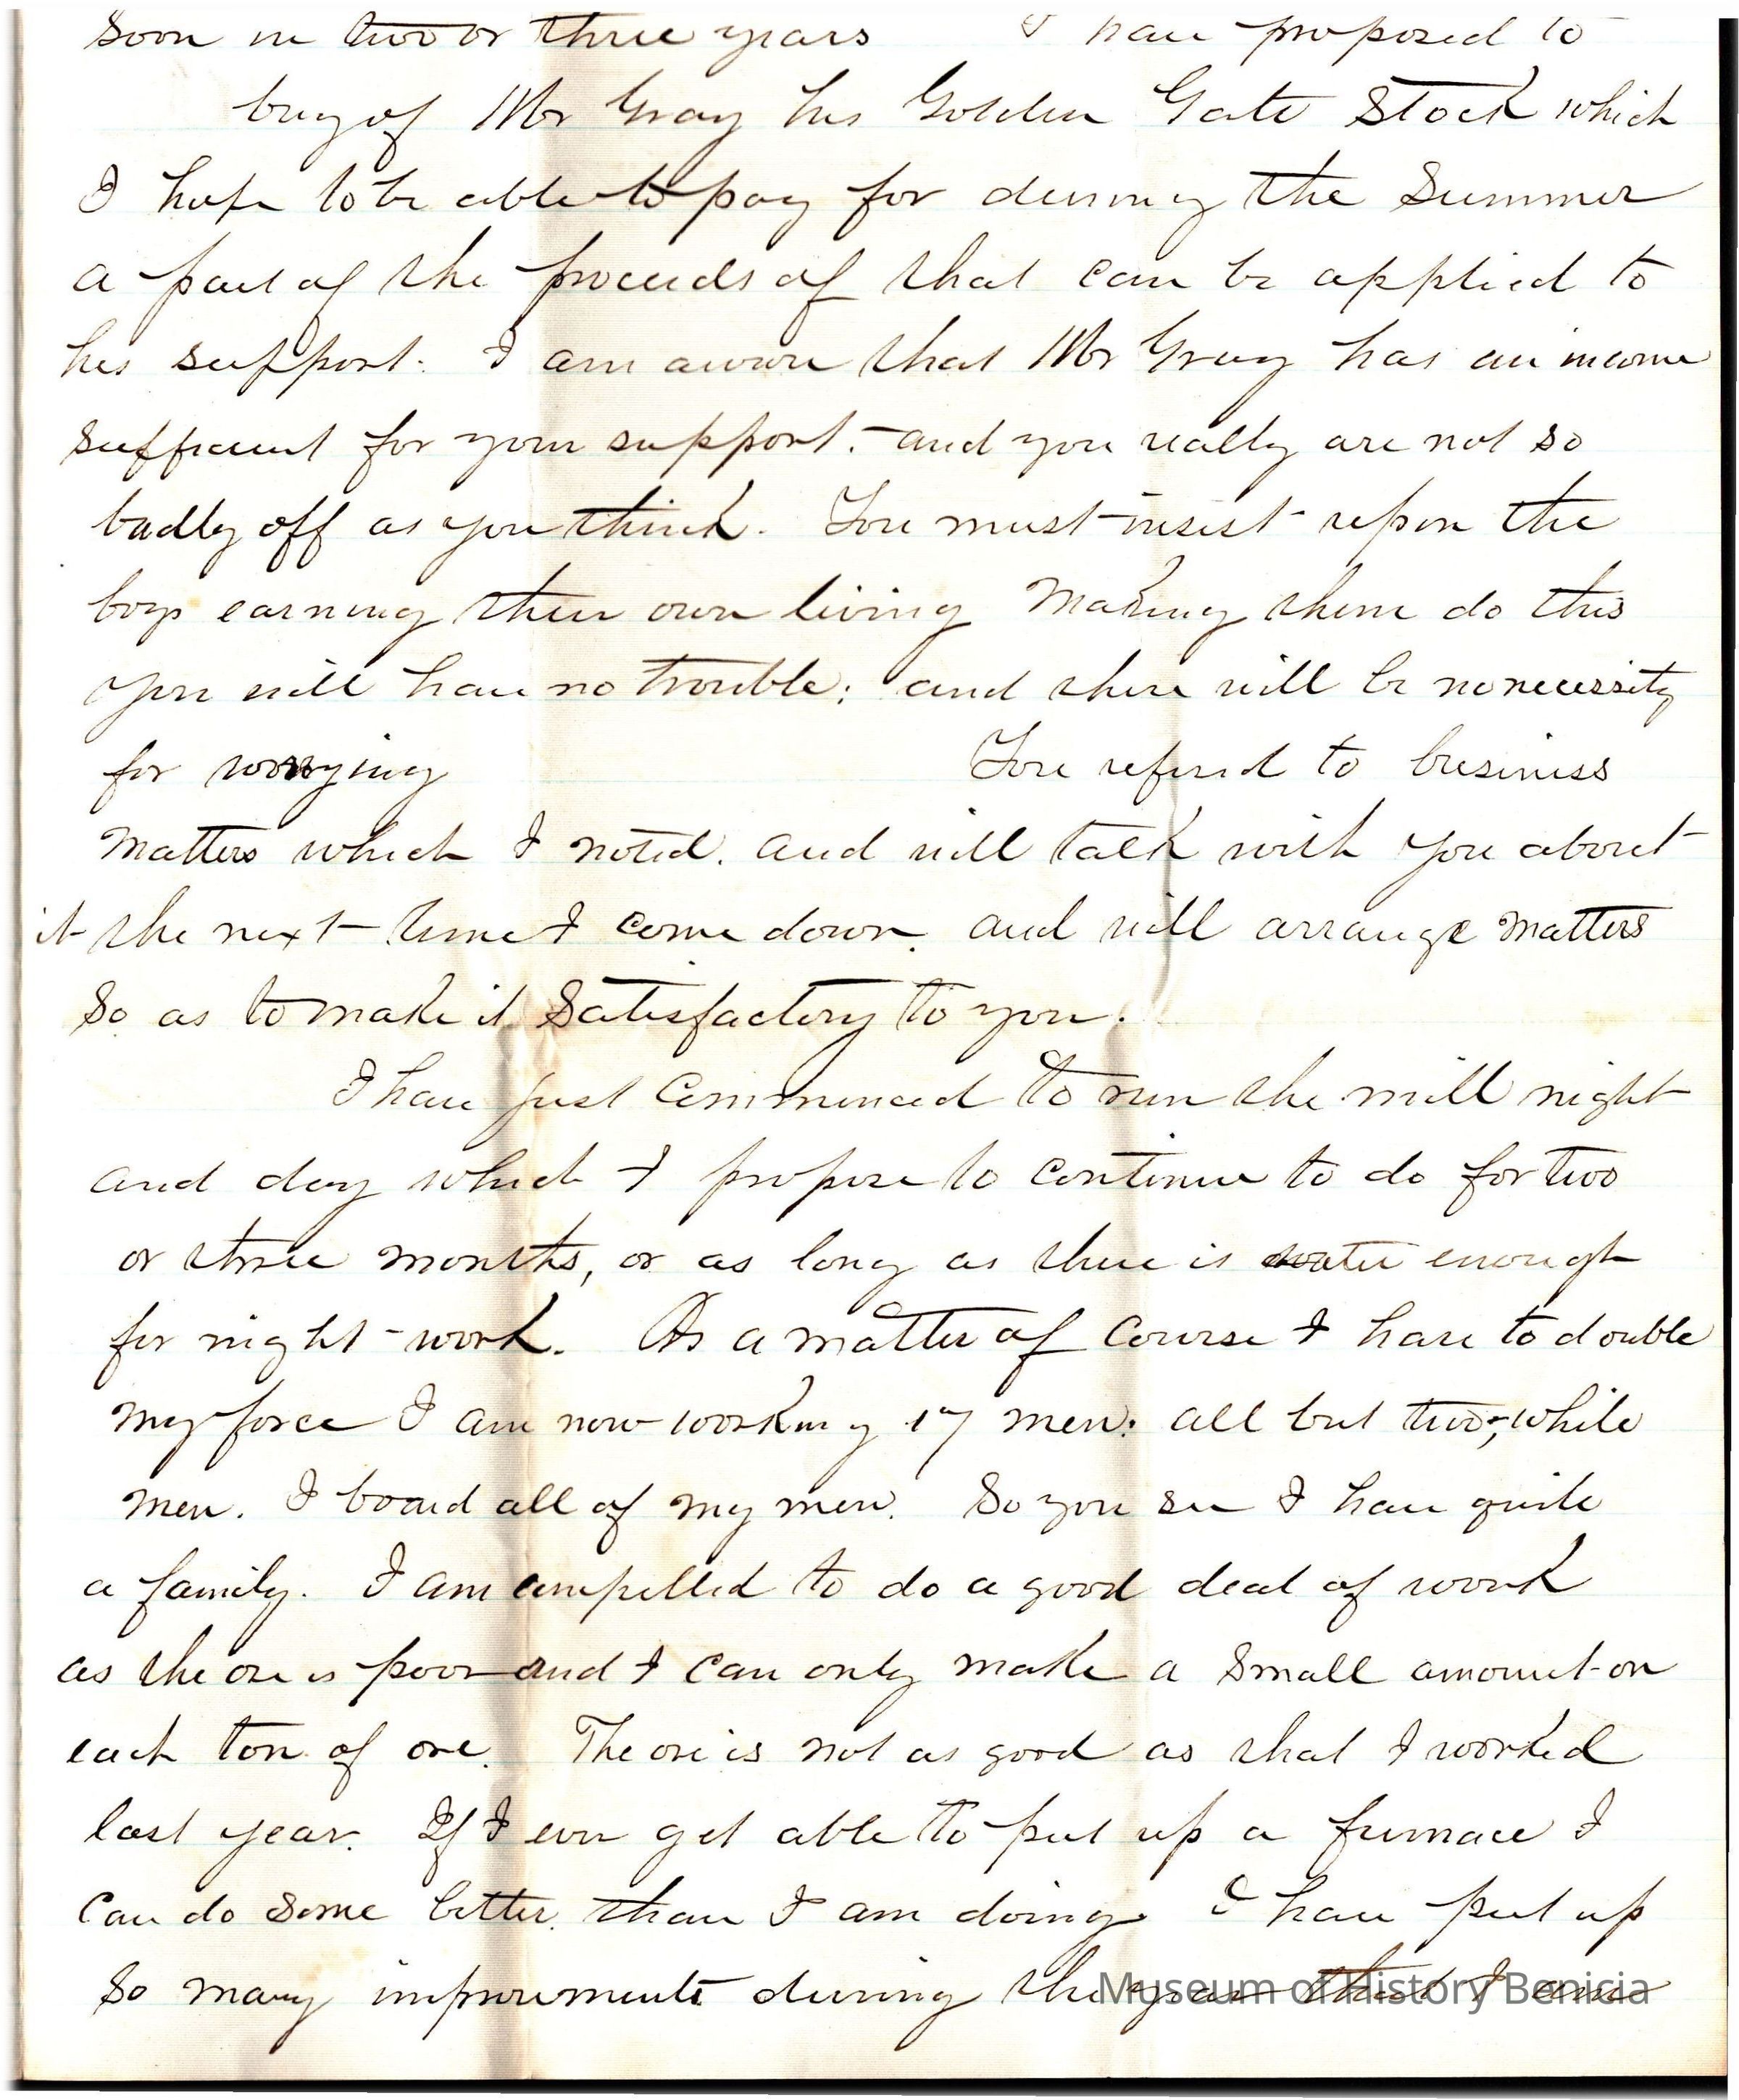 Soon in two or three years I have proposed to
buy of Mr Gray his Golden Gate Stock which
I hope to be able to pay for during the Summer
a part of the proceeds of that can be applied to
his support. I am aware that Mr Gray has an income
sufficient for your support. and you really are not so
badly off as you think. You must insist upon the
boys earning their own living Making them do this
you will have no trouble; and there will be no necessity
for worrying You referred to business
matters which I noted. and will talk with you about
it the next time I come down. and will arrange matters
So as to make it Satisfactory to you.
I have just Commenced to run the mill night
and day which I propose to continue to do for two
or three months, or as long as there is water enough
for night-work. As a matter of Course I have to double
my force I am now working 17 men: all but two, while
men. I board all of my men. So you see I have quite
a family. I am compelled to do a good deal of work
as the ore is poor and I can only make a Small amount on
each ton of ore. The ore is not as good as that I worked
last year. If I ever get able to put up a furnace I
Can do Some better than I am doing. I have put up
So many improvements during the year that I am
Museum of History Benicia